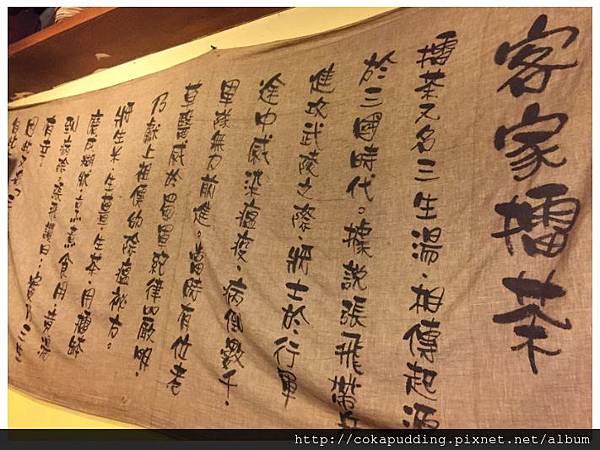 客家擂茶
擂茶又名三生湯．相傳起源
於三國時代。據說張飛帶兵
進攻武陵之際．將士於．行軍
途中感染瘟疫．病倒數千．
軍隊無力前進。當時有位老
草醫感於蜀軍紀律嚴明．
乃獻上祖傳的除瘟祕方。
將生米．生薑．生茶．用擂缽
磨成糊狀．烹煮食用．
有幸．
http://cokapudding.pixnet.net/album